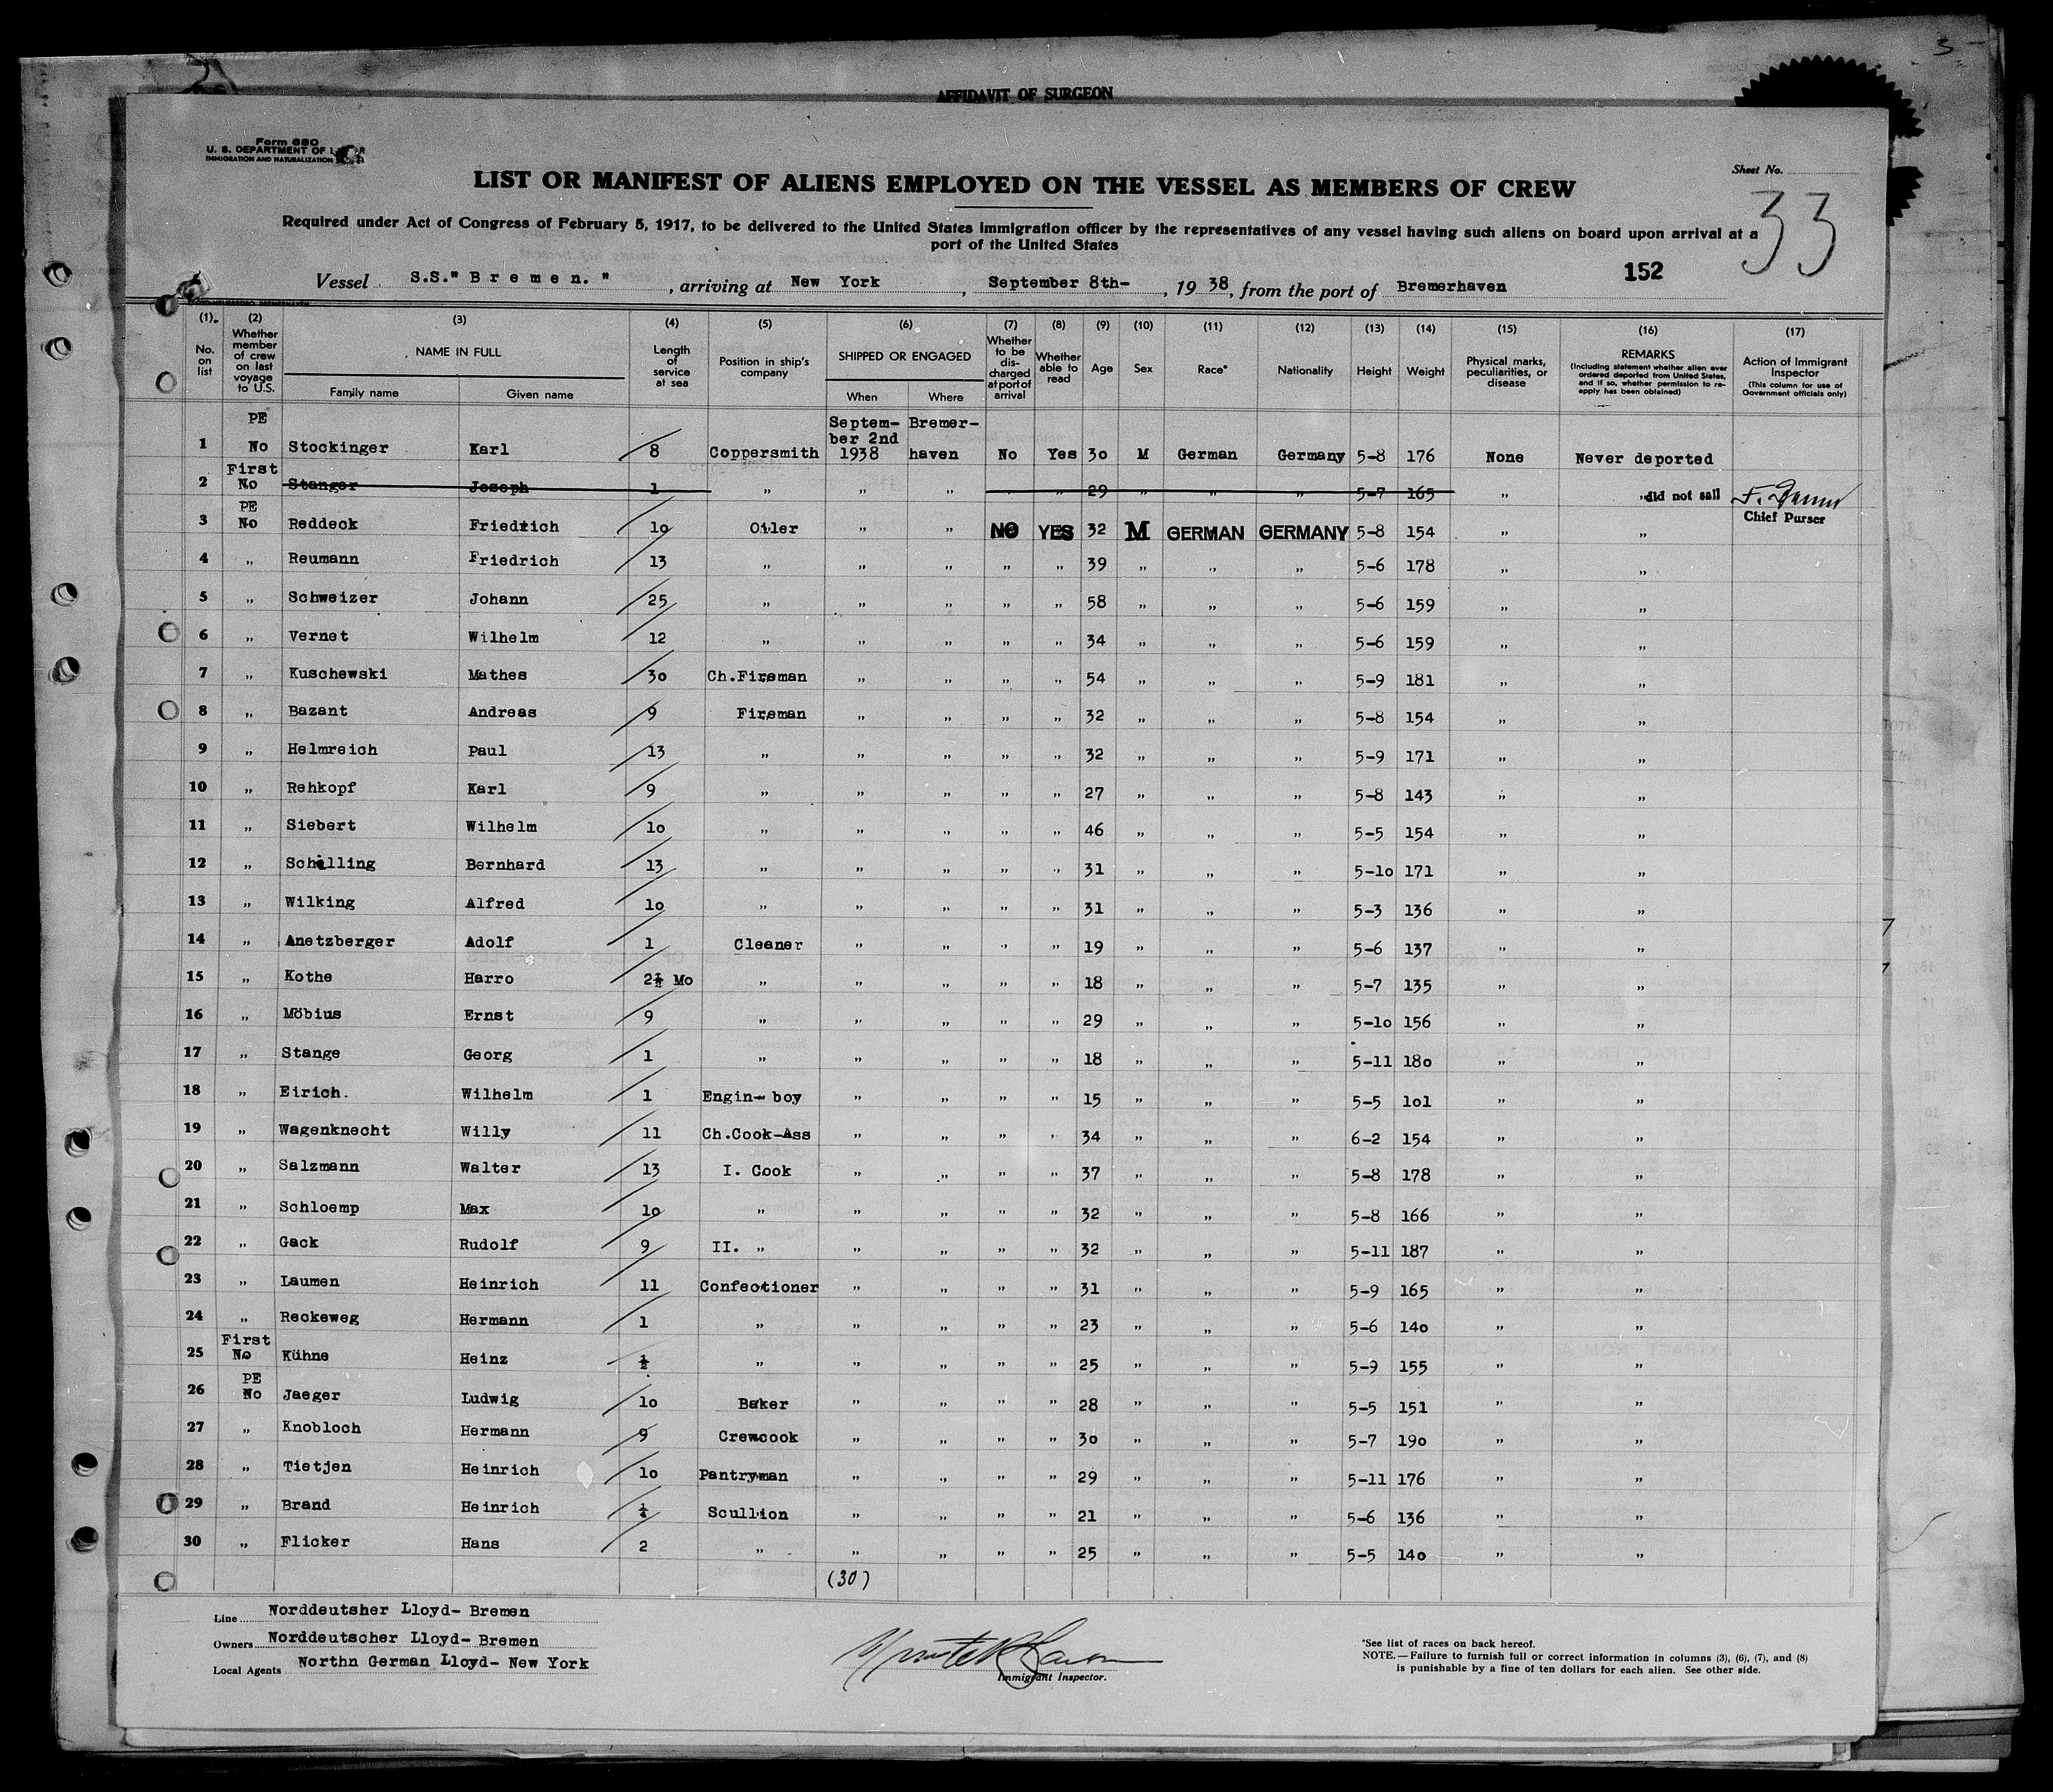 3
AFFIDAVIT OF SURGEON
Form 680
U. S. DEPARTMENT OF
IMMIGRATION AND NATURALIZATION
Sheet No.
33
LIST OR MANIFEST OF ALIENS EMPLOYED ON THE VESSEL AS MEMBERS OF CREW
Required under Act of Congress of February 5, 1917, to be delivered to the United States immigration officer by the representatives of any vessel having such aliens on board upon arrival at a
port of the United States
152
Vessel S.S." B r e m e n. " , arriving at New York , September 8th- , 19 38, from the port of Bremerhaven
(1) (2) (3) (4) (5) (6) (7) (8) (9) (10) (11) (12) (13) (14) (15) (16) (17)
No. on list Whether member of crew on last voyage to U.S. NAME IN FULL Family name Given name Length of service at sea Position in ship's company SHIPPED OR ENGAGED When Where Whether to be discharged at port of arrival Whether able to read Age Sex Race* Nationality Height Weight Physical marks, peculiarities, or disease REMARKS (Including statement whether alien ever ordered deported from United States, and if so, whether permission to re-apply has been obtained) Action of Immigrant Inspector (This column for use of Government officials only)
PE Septem- Bremer-
ber 2nd
1 No Stockinger Karl 8 Coppersmith 1938 haven No Yes 3o M German Germany 5-8 176 None Never deported
First
2 No Stanger Joseph 1 " " " " 29 " " " 5-7 165 " " did not sail
Chief Purser
PE
3 No Reddeck Friedrich 1o Oiler " " NO YES 32 M GERMAN GERMANY 5-8 154 " "
4 " Reumann Friedrich 13 " " " " " 39 " " " 5-6 178 " "
5 " Schweizer Johann 25 " " " " " 58 " " " 5-6 159 " "
6 " Vernet Wilhelm 12 " " " " " 34 " " " 5-6 159 " "
7 " Kuschewski Mathes 3o Ch.Fireman " " " " 54 " " " 5-9 181 " "
8 " Bazant Andreas 9 Fireman " " " " 32 " " " 5-8 154 " "
9 " Helmreich Paul 13 " " " " " 32 " " " 5-9 171 " "
10 " Rehkopf Karl 9 " " " " " 27 " " " 5-8 143 " "
11 " Siebert Wilhelm 1o " " " " " 46 " " " 5-5 154 " "
12 " Schilling Bernhard 13 " " " " " 31 " " " 5-1o 171 " "
13 " Wilking Alfred 1o " " " " " 31 " " " 5-3 136 " "
14 " Anetzberger Adolf 1 Cleaner " " " " 19 " " " 5-6 137 " "
15 " Kothe Harro 2½ Mo " " " " " 18 " " " 5-7 135 " "
16 " Möbius Ernst 9 " " " " " 29 " " " 5-1o 156 " "
17 " Stange Georg 1 " " " " " 18 " " " 5-11 18o " "
18 " Eirich. Wilhelm 1 Engin- boy " " " " 15 " " " 5-5 1o1 " "
19 " Wagenknecht Willy 11 Ch.Cook-Ass " " " " 34 " " " 6-2 154 " "
20 " Salzmann Walter 13 I. Cook " " " " 37 " " " 5-8 178 " "
21 " Schloemp Max 1o " " " " " 32 " " " 5-8 166 " "
22 " Gack Rudolf 9 II. " " " " " 32 " " " 5-11 187 " "
23 " Laumen Heinrich 11 Confectioner " " " " 31 " " " 5-9 165 " "
24 " Reckeweg Hermann 1 " " " " " 23 " " " 5-6 14o " "
First
25 No Kühne Heinz ½ " " " " " 25 " " " 5-9 155 " "
PE
26 No Jaeger Ludwig 1o Baker " " " " 28 " " " 5-5 151 " "
27 " Knobloch Hermann 9 Crewcook " " " " 3o " " " 5-7 19o " "
28 " Tietjen Heinrich 1o Pantryman " " " " 29 " " " 5-11 176 " "
29 " Brand Heinrich Scullion " " " " 21 " " " 5-6 136 " "
30 " Flicker Hans 2 " " " " " 25 " " " 5-5 14o " "
(30)
Line Norddeutsher Lloyd- Bremen
Owners Norddeutscher Lloyd- Bremen
Local Agents Northn German Lloyd- New York
Immigrant Inspector.
*See list of races on back hereof.
NOTE.—Failure to furnish full or correct information in columns (3), (6), (7), and (8)
is punishable by a fine of ten dollars for each alien. See other side.